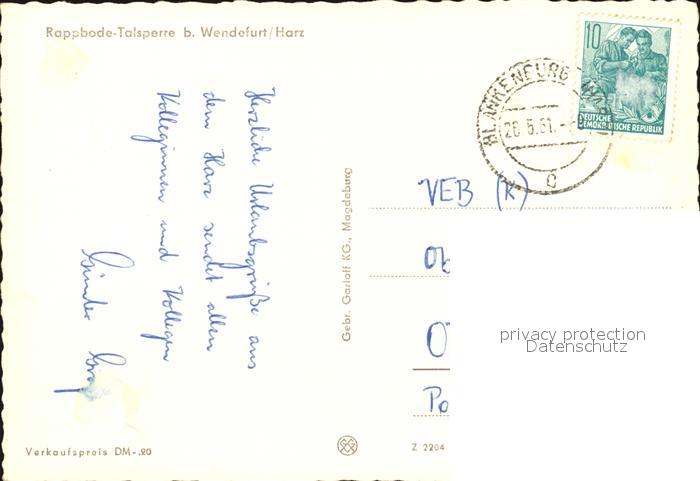 Rappbode-Talsperre b. Wendefurt/Harz
Herzliche Urlaubsgrüße aus
dem Harz sendet allen
Kolleginnen und Kollegen
Günder
Verkaufspreis DM -.20
Gebr. Garloff KG., Magdeburg
Z 2204
10
DEUTSCHE
DEMOKRATISCHE REPUBLIK
BLANKENBURG (HARZ)
26.5.61.-
c
VEB (K)
Ob
O
Po
privacy protection
Datenschutz